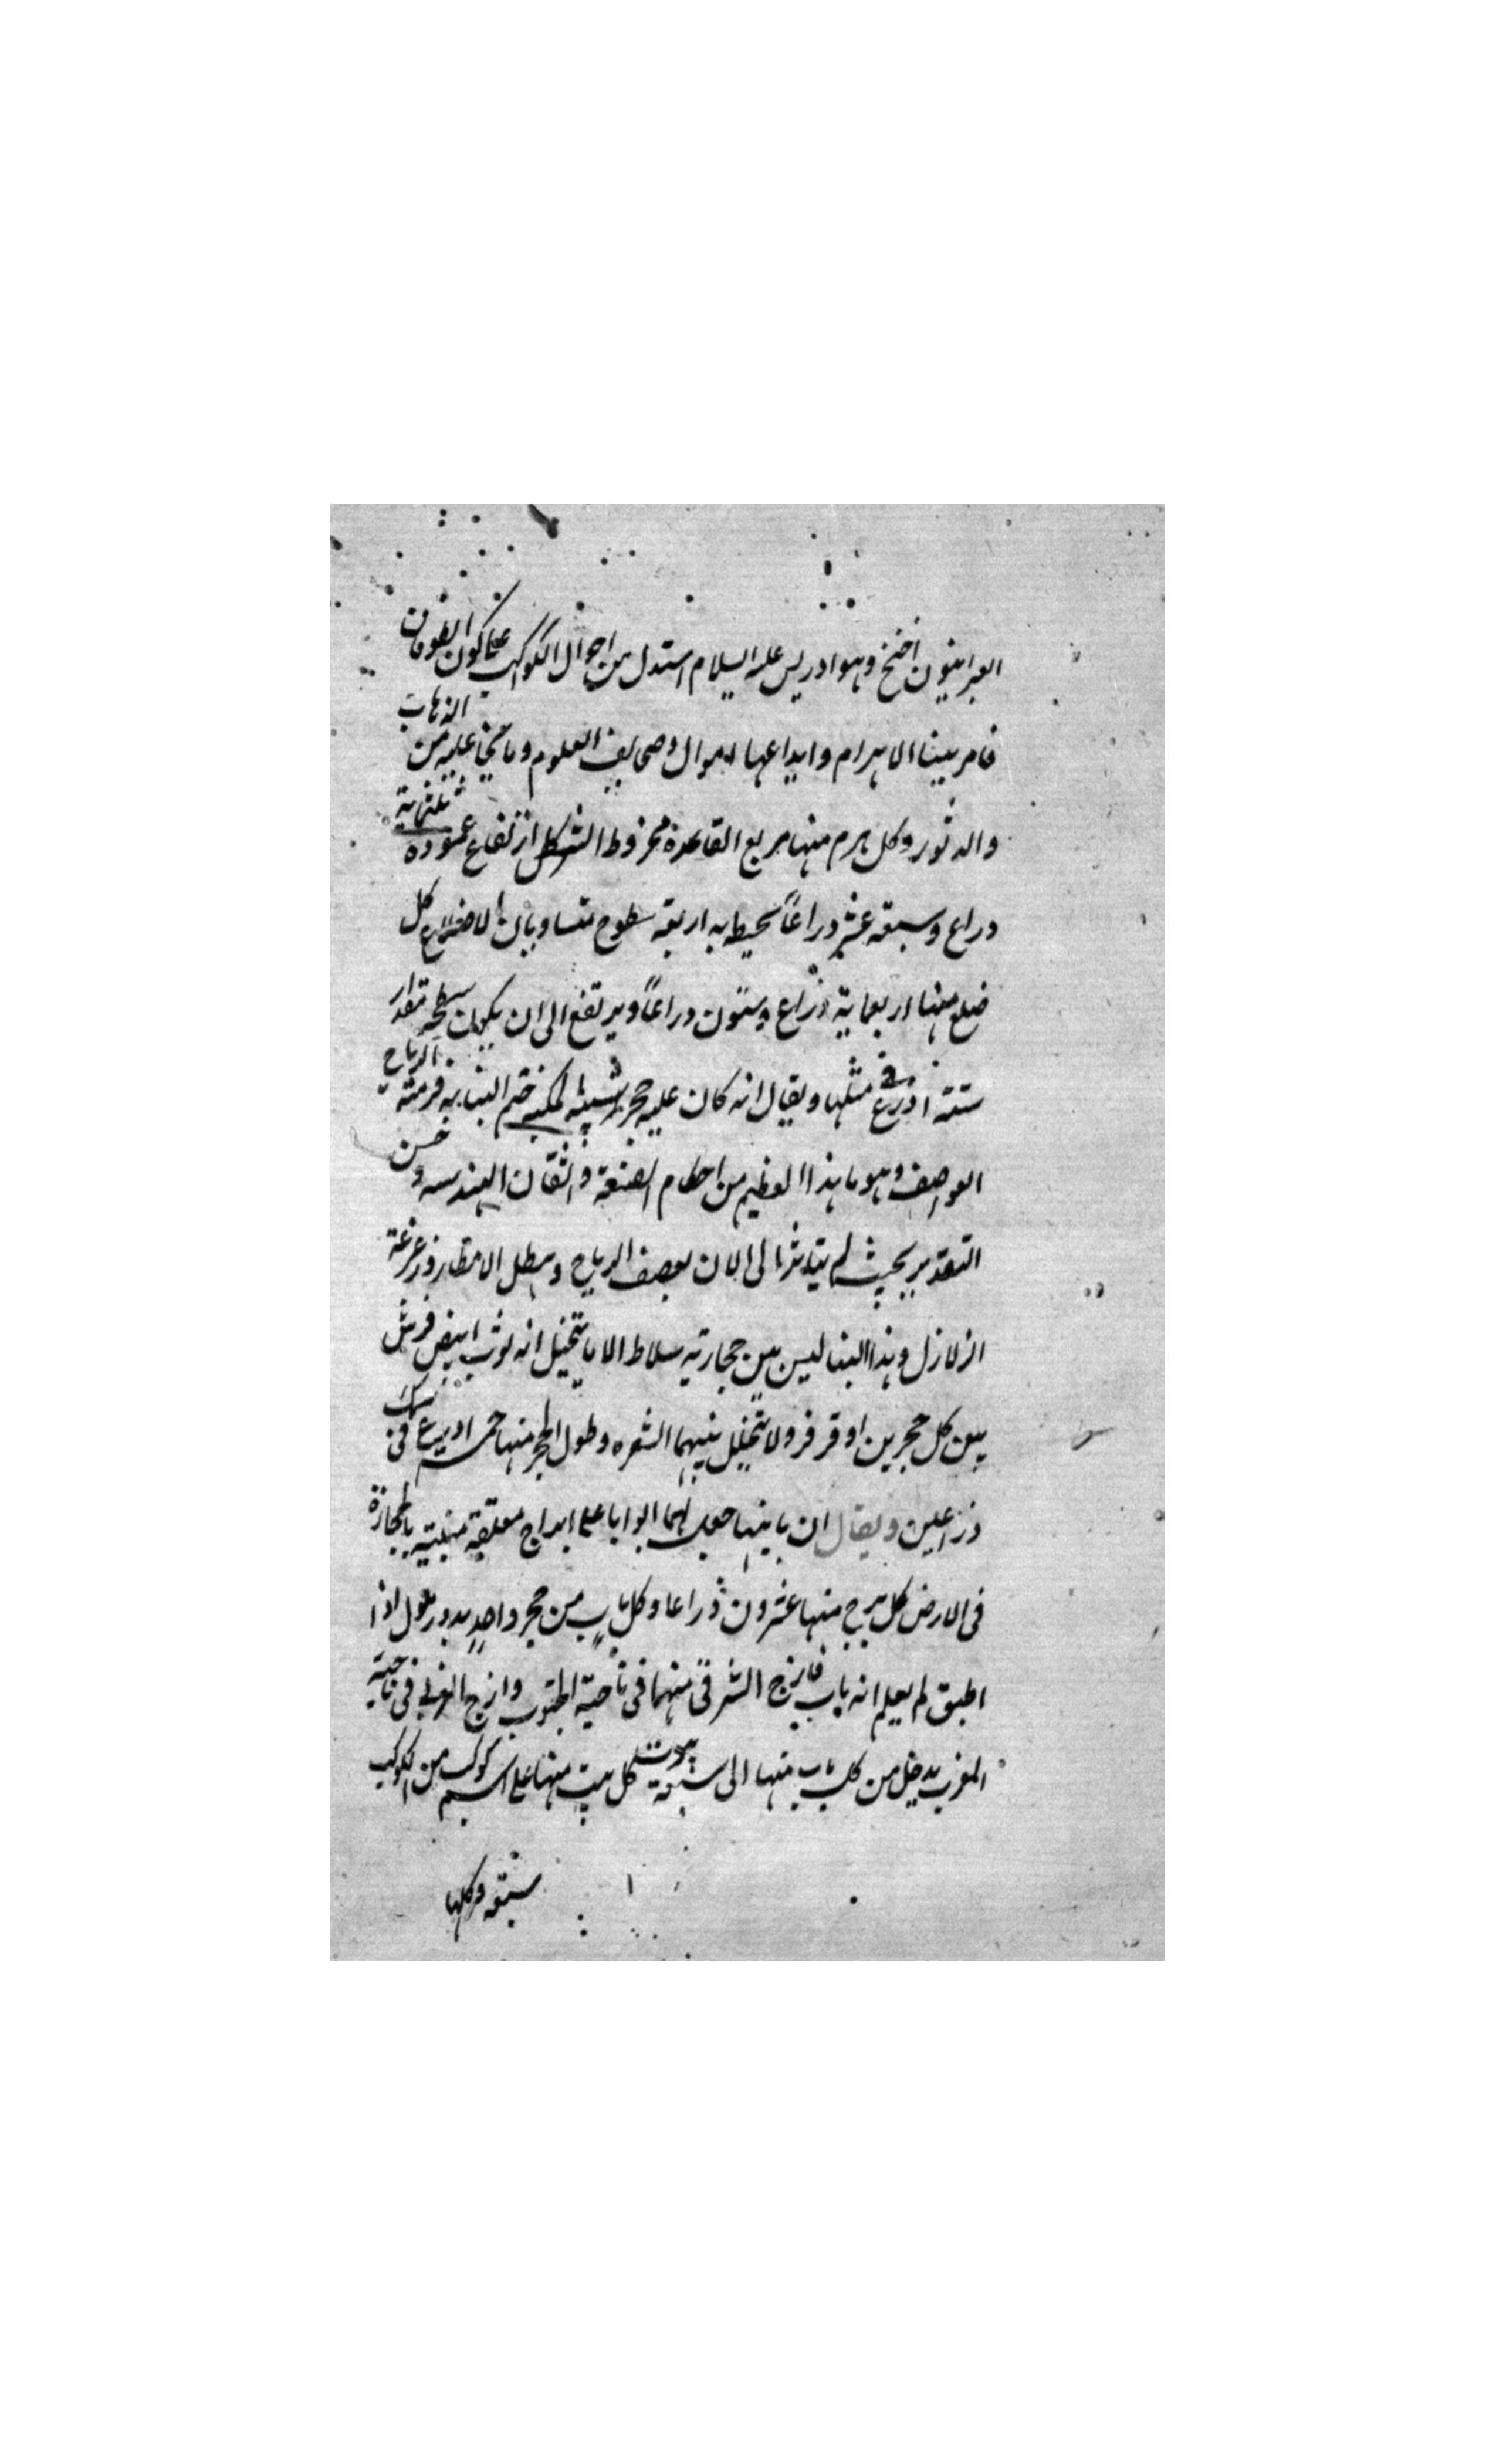 العبرانيون اخنخ وهو ادريس عليه السلام استدل من احوال الكواكب على كون الطوفان
فامر ببنا الاهرام وايداعها الاموال وصحايف العلوم وما يخاف عليه من الذهاب
والدثور وكل هرم منها مربع القاعدة مخروط الشكل ارتفاع عموده ثلثماية
دراع وسبعة عشر دراعاً يحيط به اربعة سطوح متساويات الاضلاع كل
ضلع منها اربعماية ذراع وستون دراعاً ويرتفع الى ان يكون سطحه مقدار
ستة اذرع فى مثلها ويقال انه كان عليه حجر شبيه المكبه ختم البنا به فرمته الرياح
العواصف وهو ما هذا العظيم من احكام الصنعة واتقان الهندسه وحسن
التقدير بحيث لم يتاثر الى الان بعصف الرياح وهطل الامطار وزعزعة
الزلازل وهذا البنا ليس بين حجارته ملاط الا ما يتخيل انه ثوب ابيض فرش
بين كل حجرين او قرفر ولا يتخلل بينهما الشعره وطول الحجر منها خمس ادرع فى سمك
ذراعين ويقال ان بانيها جعل لهما ابوابا على ابراج معلقة مبنيه بالحجارة
فى الارض كل برج منها عشرون ذراعا وكل باب من حجر واحد يدور بلول اذا
اطبق لم يعلم انه باب فازج الشرقى منهما فى ناحية الجنوب وازج الغربى فى ناحية
المغرب يدخل من كل باب منها الى سبعة بيوت كل بيت منها على اسم كوكب من الكواكب
سبعة وكلها